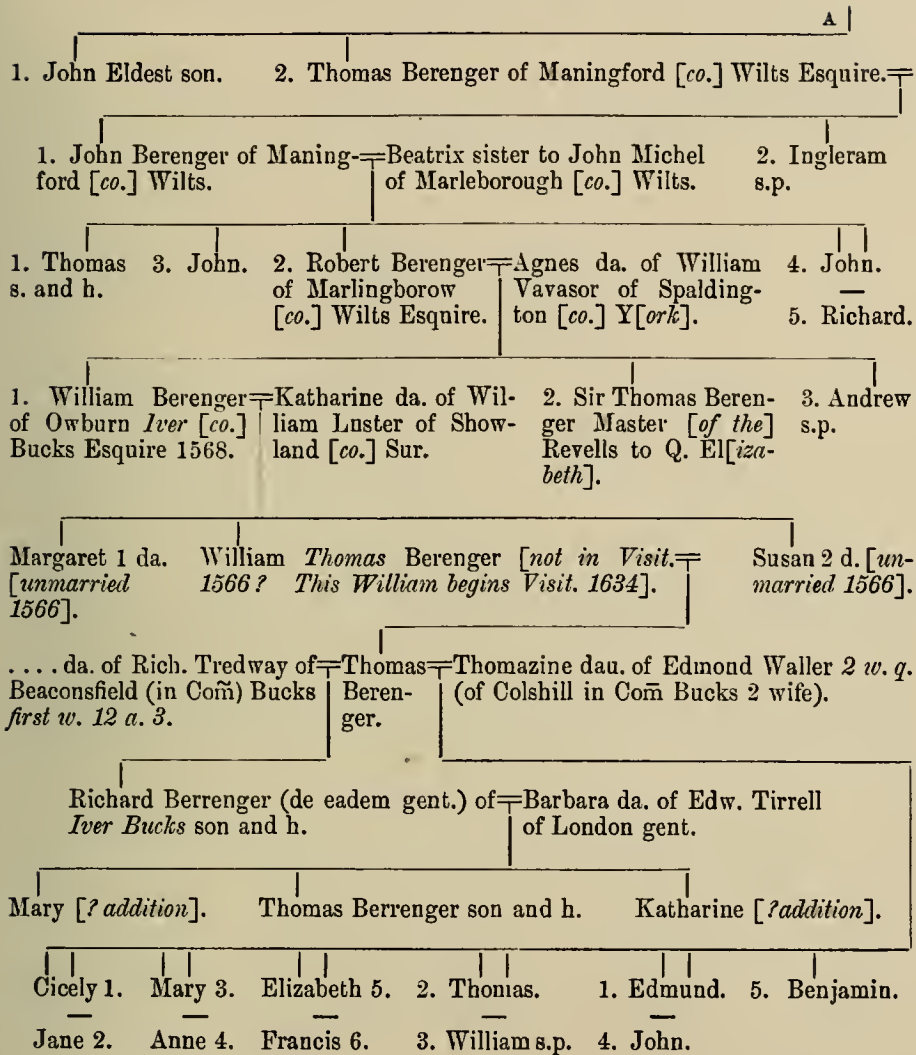 A
1. John Eldest son. 2. Thomas Berenger of Maningford [co.] Wilts Esquire.
1. John Berenger of Maning-
ford [co.] Wilts.
Beatrix sister to John Michel
of Marleborough [co.] Wilts.
2. Ingleram
s.p.
1. Thomas
s. and h.
3. John.
2. Robert Berenger
of Marlingborow
[co.] Wilts Esquire.
Agnes da. of William
Vavasor of Spalding-
ton [co.] Y[ork].
4. John.
—
5. Richard.
1. William Berenger
of Owburn Iver [co.]
Bucks Esquire 1568.
Katharine da. of Wil-
liam Luster of Show-
land [co.] Sur.
2. Sir Thomas Beren-
ger Master [of the]
Revells to Q. El[iza-
beth].
3. Andrew
s.p.
Margaret 1 da.
[unmarried
1566].
William Thomas Berenger [not in Visit.
1566? This William begins Visit. 1634].
Susan 2 d. [un-
married 1566].
.... da. of Rich. Tredway of
Beaconsfield (in Com̃) Bucks
first w. 12 a. 3.
Thomas
Beren-
ger.
Thomazine dau. of Edmond Waller 2 w. q.
(of Colshill in Com̃ Bucks 2 wife).
Richard Berrenger (de eadem gent.) of
Iver Bucks son and h.
Barbara da. of Edw. Tirrell
of London gent.
Mary [? addition]. Thomas Berrenger son and h. Katharine [?addition].
Cicely 1. Mary 3. Elizabeth 5. 2. Thomas. 1. Edmund. 5. Benjamin.
— — — — —
Jane 2. Anne 4. Francis 6. 3. William s.p. 4. John.